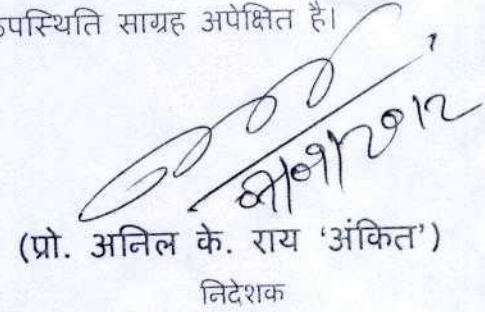 उपस्थिति साग्रह अपेक्षित है।
(प्रो. अनिल के. राय 'अंकित')
निदेशक